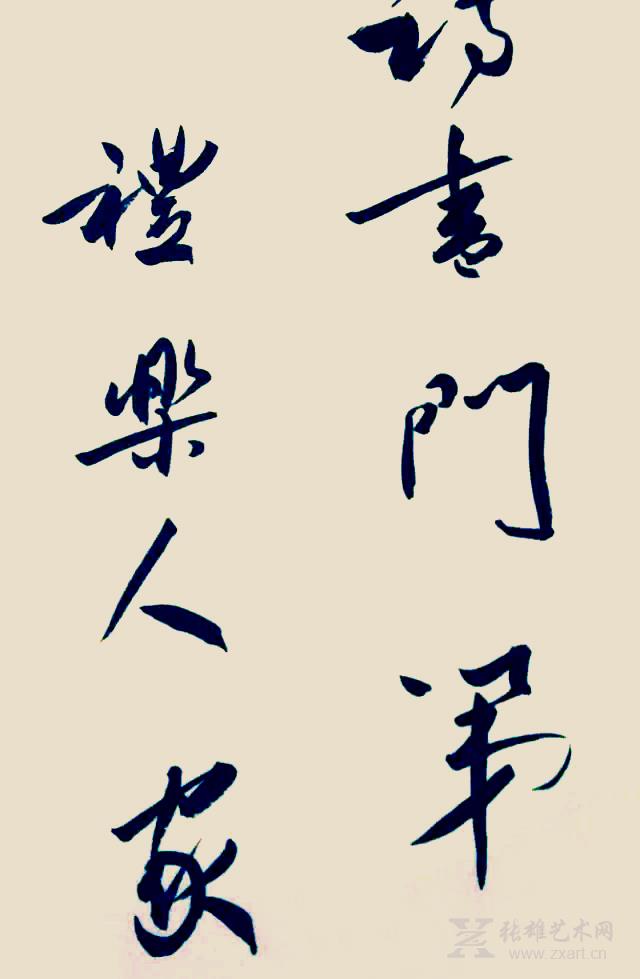 詩書門第
禮樂人家
张雄艺术网
www.zxart.cn